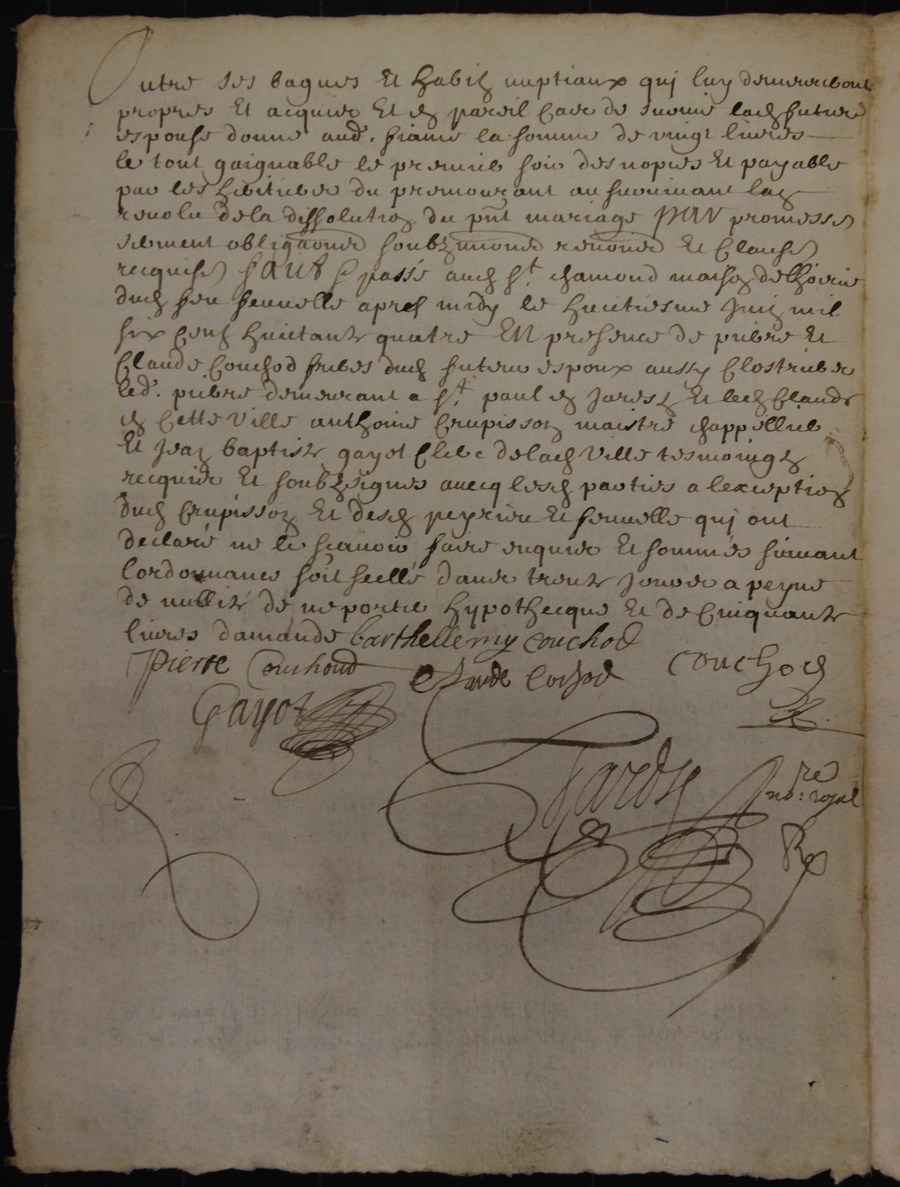 Outre ses bagues Et habitz nuptiaux quj luy demeureront
propres Et acquis Et en pareil cas de survie lad. future
espouse donne aud. fiancé la somme de vingt livres
le tout gaignable le premier soir des nopces Et payable
par les heritiers du premourant au survivant l'an
revolu de la dissolution du pnt mariage PAR promesses
serment obligaōns soubzmiōns renōns Et clauses
requises FAIT & passé aud. St. chamond maison d'hoirie
dud. feu fenuelle apres midy le huictiesme Juin mil
six cent huictante quatre EN presence de pierre Et
Claude Couchod freres dud. futeur espoux aussy Clostriers
led. pierre demeurant a St. paul en Jarest Et led. Claude
en Cette Ville anthoine Crupisson maistre chappellier
Et Jean baptiste gayot Clerc de lad. Ville tesmoingz
requis Et soubzsignes avecq lesd. parties a lexception
dud. Crupisson Et desd. peyriere Et fenuelle quj ont
declaré ne le sçavoir faire enquis Et sommés suivant
Lordonnance soit scellé dans trente jours a peyne
de nullité de ne porter hypothecque Et de Cinquante
livres damande barthellemy couchod
Pierre Couchoud Claude Cochod couchod
Gayot
Jardy nore royal